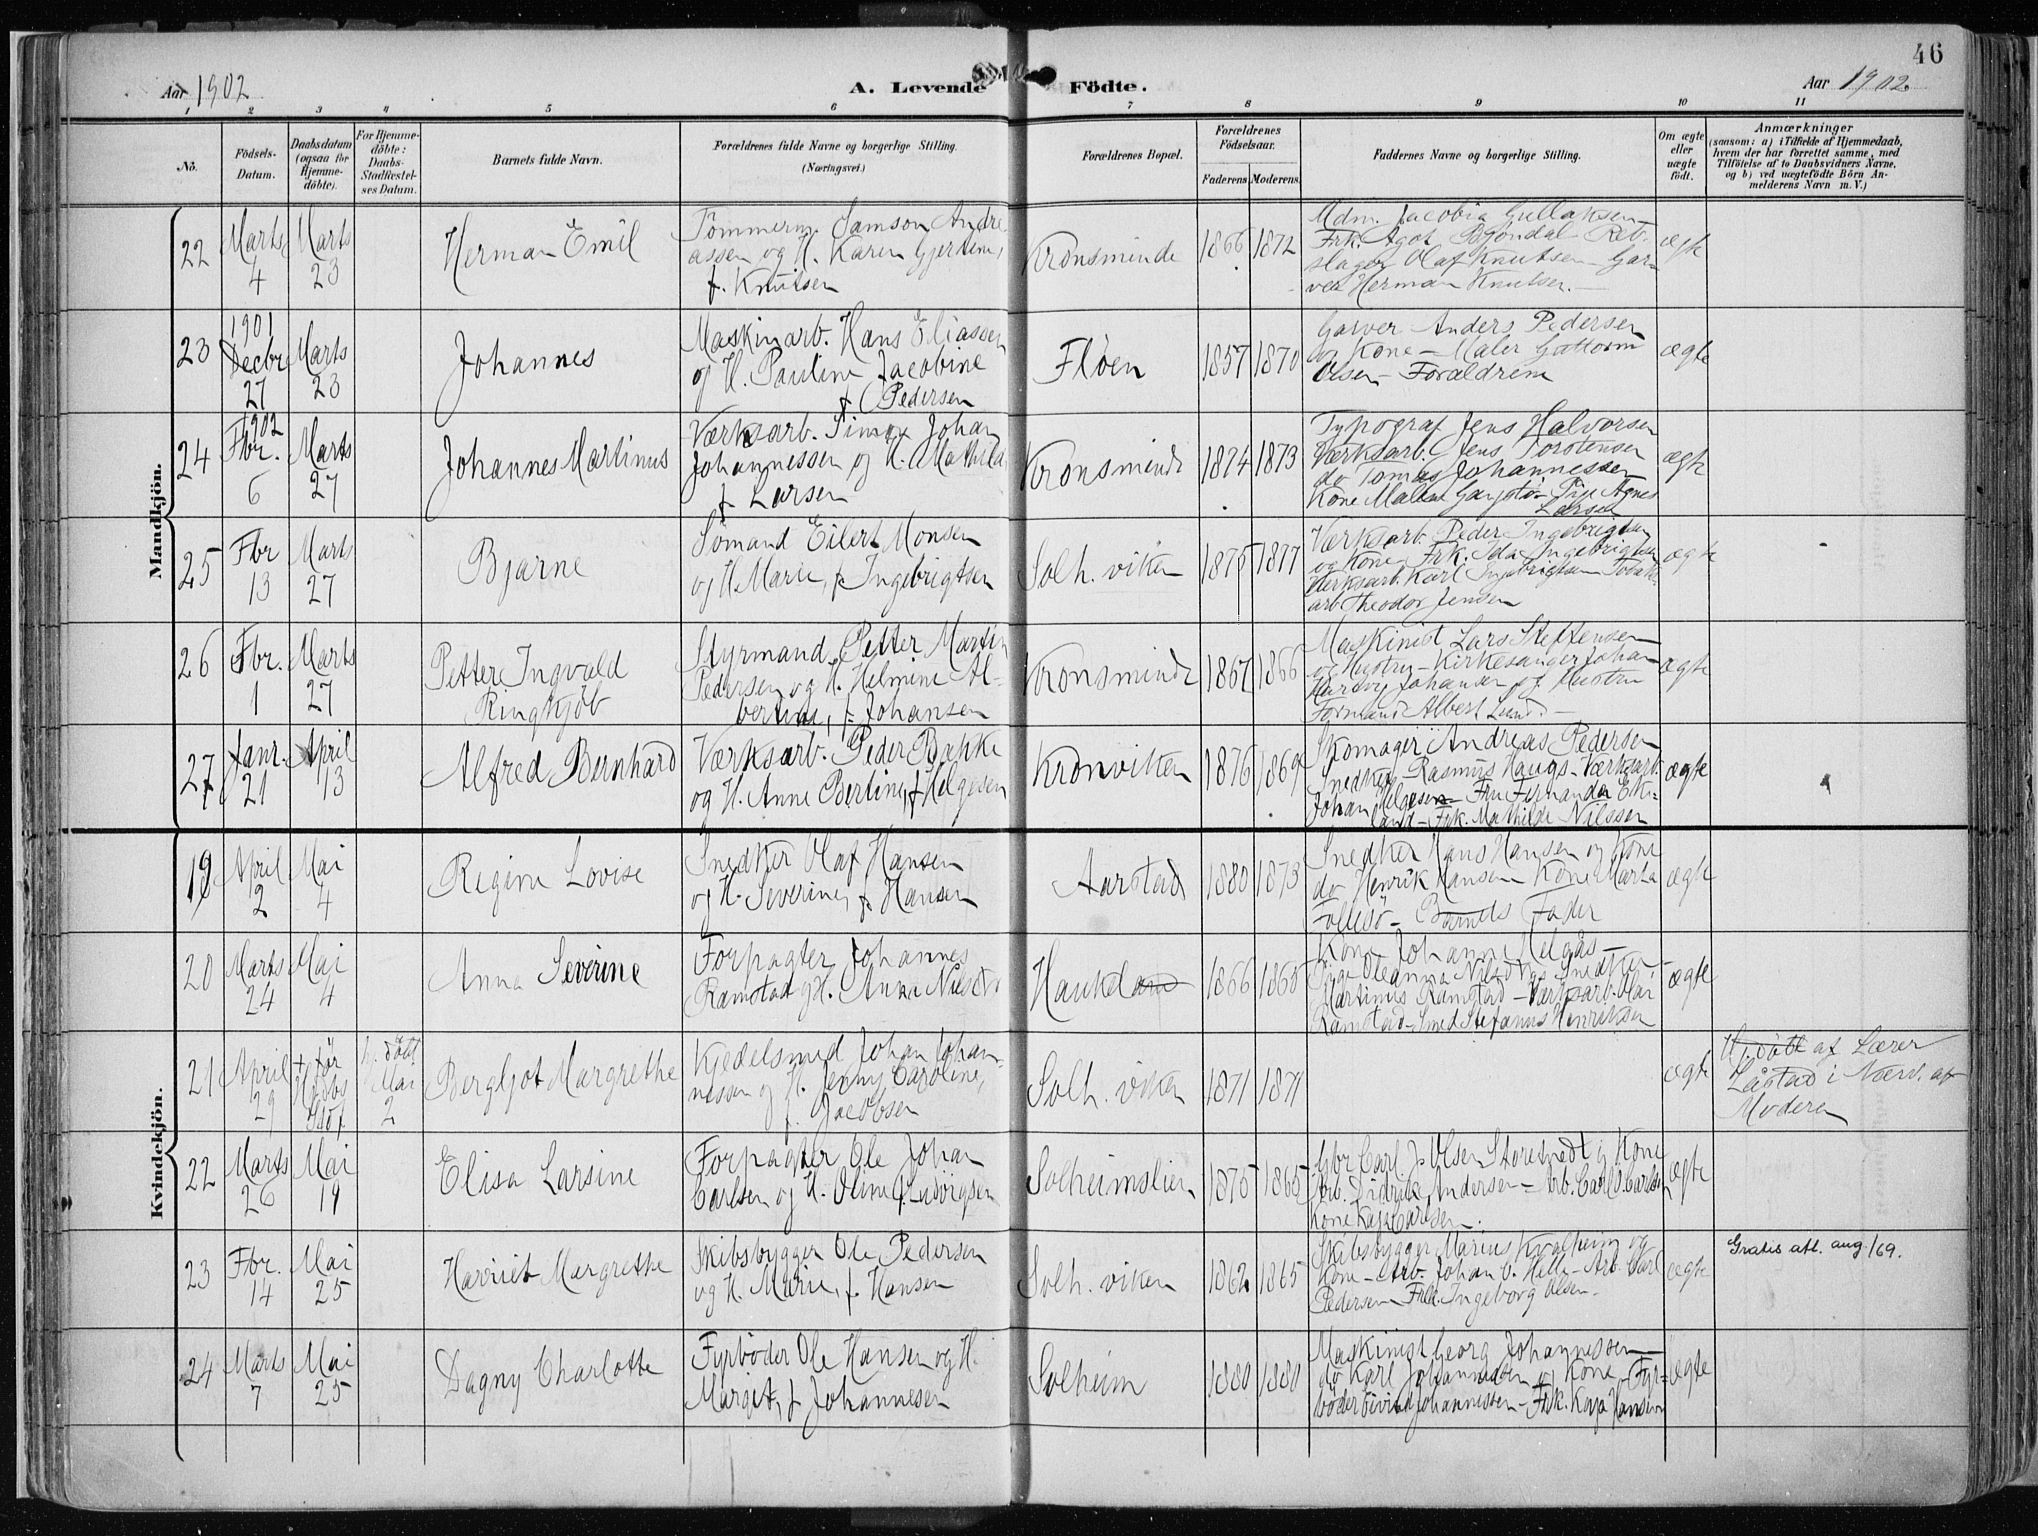 46
Aar 1902
A. Levende Födte.
Aar 1902.
1 2 3 4 5 6 7 8 9 10 11
No.
Födsels-Datum.
Daabsdatum (ogsaa for Hjemme-döbte).
For Hjemme-döbte: Daabs-Stadfæstel-ses Datum.
Barnets fulde Navn.
Forældrenes fulde Navne og borgerlige Stilling. (Næringsvei.)
Forældrenes Bopæl.
Forældrenes Födselsaar.
Faderens Moderens
Faddernes Navne og borgerlige Stilling.
Om ægte eller uægte födt.
Anmærkninger
(saasom: a) i Tilfælde af Hjemmedaab, hvem der har forrettet samme, med Tilföielse af to Daabsvidners Navne, og b) ved uægtefödte Börn An-melderens Navn m. V.)
Mandkjön.
22 Marts 4 Marts 23
Herman Emil
Tömmerm. Samson Andre
assen og H. Karen Gjertine,
f. Knutsen
Kronsminde 1866 1872
Mdm. Jacobia Gullaksen
Frk. Agot Bjöndal Reb-
slager Olaf Knutsen Gar-
ver Herman Knutsen.
ægte
23 1901 Decbr 27 Marts 23
Johannes
Maskinarb. Hans Eliassen
og H. Pauline Jacobine
f. Pedersen
Flöen 1857 1870
Garver Anders Pedersen
og Kone - Maler Guttorm
Olsen - Forældrene
ægte
24 1902 Fbr. 6 Marts 27
Johannes Martinus
Værksarb. Simon Johan
Johannessen og H. Mathilde
f. Larsen
Kronsminde 1874 1873
Typograf Jens Halvorsen
Værksarb. Jens Torstensen
do Tomas Johannessen
Kone Malen - Pige Agnes
Larsen
ægte
25 Fbr 13 Marts 27
Bjarne
Sömand Eilert Monsen
og H. Marie, f. Ingebrigtsen
Solh. viken 1875 1877
Værksarb. Peder Ingebrigtsen
og Kone, Frk. Ida Ingebrigtsen
Værksarb. Karl Ingebrigtsen
arb Theodor Jensen
ægte
26 Fbr. 1 Marts 27
Petter Ingvald
Ringkjöb
Styrmand Petter Martin
Pedersen og H. Helmine Al-
bertine, f. Johansen
Kronsminde 1867 1866
Maskinist Lars Steffensen
og Hustru - Kirkesanger Johan
Johansen og Hustru
Formand Albert Lund.
ægte
27 Janr. 21 April 13
Alfred Bernhard
Værksarb. Peder Bakke
og H. Anne Bertine, f. Helgesen
Kronviken 1876 1869
Skomager Andreas Pedersen
Snedker Rasmus Haugs - Værksarb.
Johan Helgesen - Fru Fernanda Ek-
land - Frk. Mathilde Nilssen
ægte
Kvindekjön.
19 April 2 Mai 4
Regine Lovise
Snedker Olaf Hansen
og H. Severine, f. Hansen
Aarstad 1880 1873
Snedker Hans Hansen og Kone
do Henrik Hansen Kone Marta
Follesö - Barnets Fader
ægte
20 Marts 24 Mai 4
Anna Severine
Forpagter Johannes
Ramstad og H. Anna Nilsdtr
Haukeland 1866 1865
Kone Johanne
Pige Oleanna Snedker
Martinus Ramstad - Værksarb.
Ramstad - Smed Stefanus Henriksen
ægte
21 April 29 Mai 2
Bergljot Margrethe
Kjedelsmed Johan Johan-
nessen og H. Jenny Caroline,
f. Jacobsen
Solh. viken 1871 1871
ægte
Hj. döbt af Lærer
i Nærv. af
Moderen
22 Marts 26 Mai 19
Elisa Larsine
Forpagter Ole Johan
Carlsen og H. Oline f. Ludvigsen
Solheimslien 1875 1865
Gbr Carl J. Olsen Storetvedt og Kone
Arb. Didrik Andersen - Arb. Carl Carlsen
Kone Kaja Carlsen.
ægte
23 Fbr. 14 Mai 25
Harriet Margrethe
Skibsbygger Ole Pedersen
og H. Marie, f. Hansen
Solh. viken 1862 1865
Skibsbygger Marius Kvalheim og
Kone - Arb. Johan C. Helle - Arb. Carl
Pedersen Frk. Ingeborg Olsen.
ægte
Gratis att. aug/69.
24 Marts 7 Mai 25
Dagny Charlotte
Fyrböder Ole Hansen og H.
Margit, f. Johannesen
Solheim 1880 1880
Maskinist Georg Johannessen
do Karl Johannessen og Kone - Fyr-
böder Johannessen - Frk. Kaja Hansen
ægte